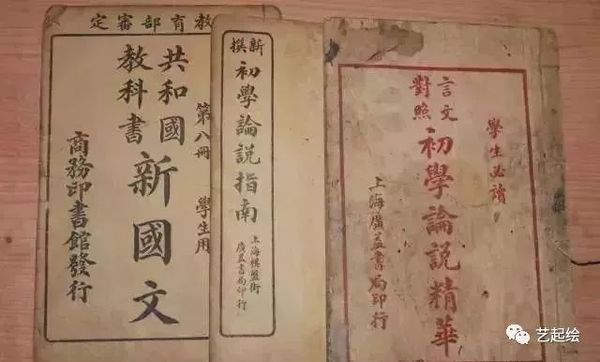 教育部審定
第八冊 學生用
共和國
教科書
新國文
商務印書館發行
新撰
初學論說指南
上海棋盤街
廣益書局印行
學生必讀
言文
對照
初學論說精華
上海廣益書局印行
艺起绘